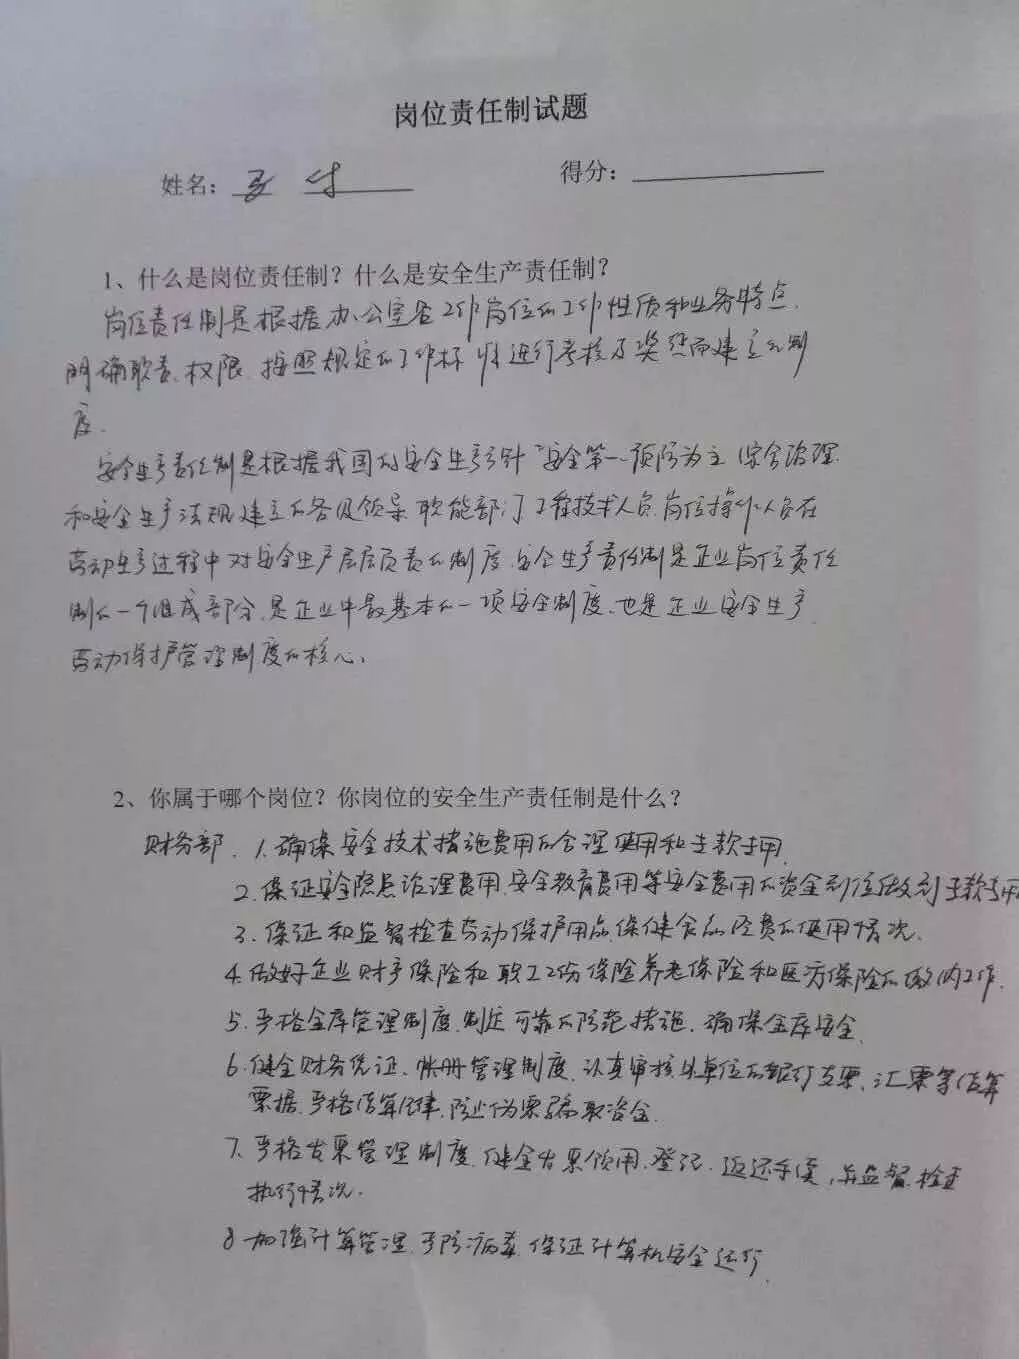 岗位责任制试题
姓名： 得分：
1、什么是岗位责任制？什么是安全生产责任制？
岗位责任制是根据办公室各工作岗位的工作性质和业务特点，
明确职责、权限，按照规定的工作标准进行考核及奖惩而建立的制
度。
安全生产责任制是根据我国的安全生产方针"安全第一、预防为主、综合治理
和安全生产法规建立的各级领导、职能部门、工程技术人员、岗位操作人员在
劳动生产过程中对安全生产层层负责的制度，安全生产责任制是企业岗位责任
制的一个组成部分，是企业中最基本的一项安全制度，也是企业安全生产
劳动保护管理制度的核心。
2、你属于哪个岗位？你岗位的安全生产责任制是什么？
财务部、1.确保安全技术措施费用的合理使用和专款专用，
2.保证安全隐患治理费用，安全教育费用等安全费用的资金到位做到专款专用
3.保证和监督检查劳动保护用品、保健食品经费的使用情况。
4.做好企业财产保险和职工工伤保险养老保险和医疗保险的缴纳工作，
5.严格金库管理制度，制定可靠的防范措施，确保金库安全。
6.健全财务凭证、帐册管理制度，认真审核外单位的银行支票、汇票等结算
票据，严格结算纪律，防止伪票骗取资金。
7.严格发票管理制度，健全发票领用、登记、返还手续，并监督、检查
执行情况。
8.加强计算管理，预防病毒，保证计算机安全运行。